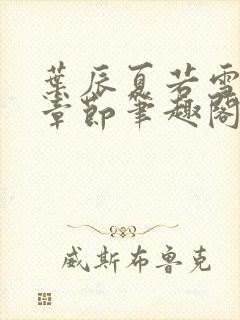 葉辰夏若雪
章節筆趣閣
威斯布魯克